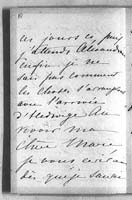 ces jours ci, puis
j'attends Alexandre
Enfin je ne
sais pas comment
les choses s'arrangent
avec l'arrivée
d'Hedwige Au
revoir ma
chère Marie
je vous
dès que je saurai